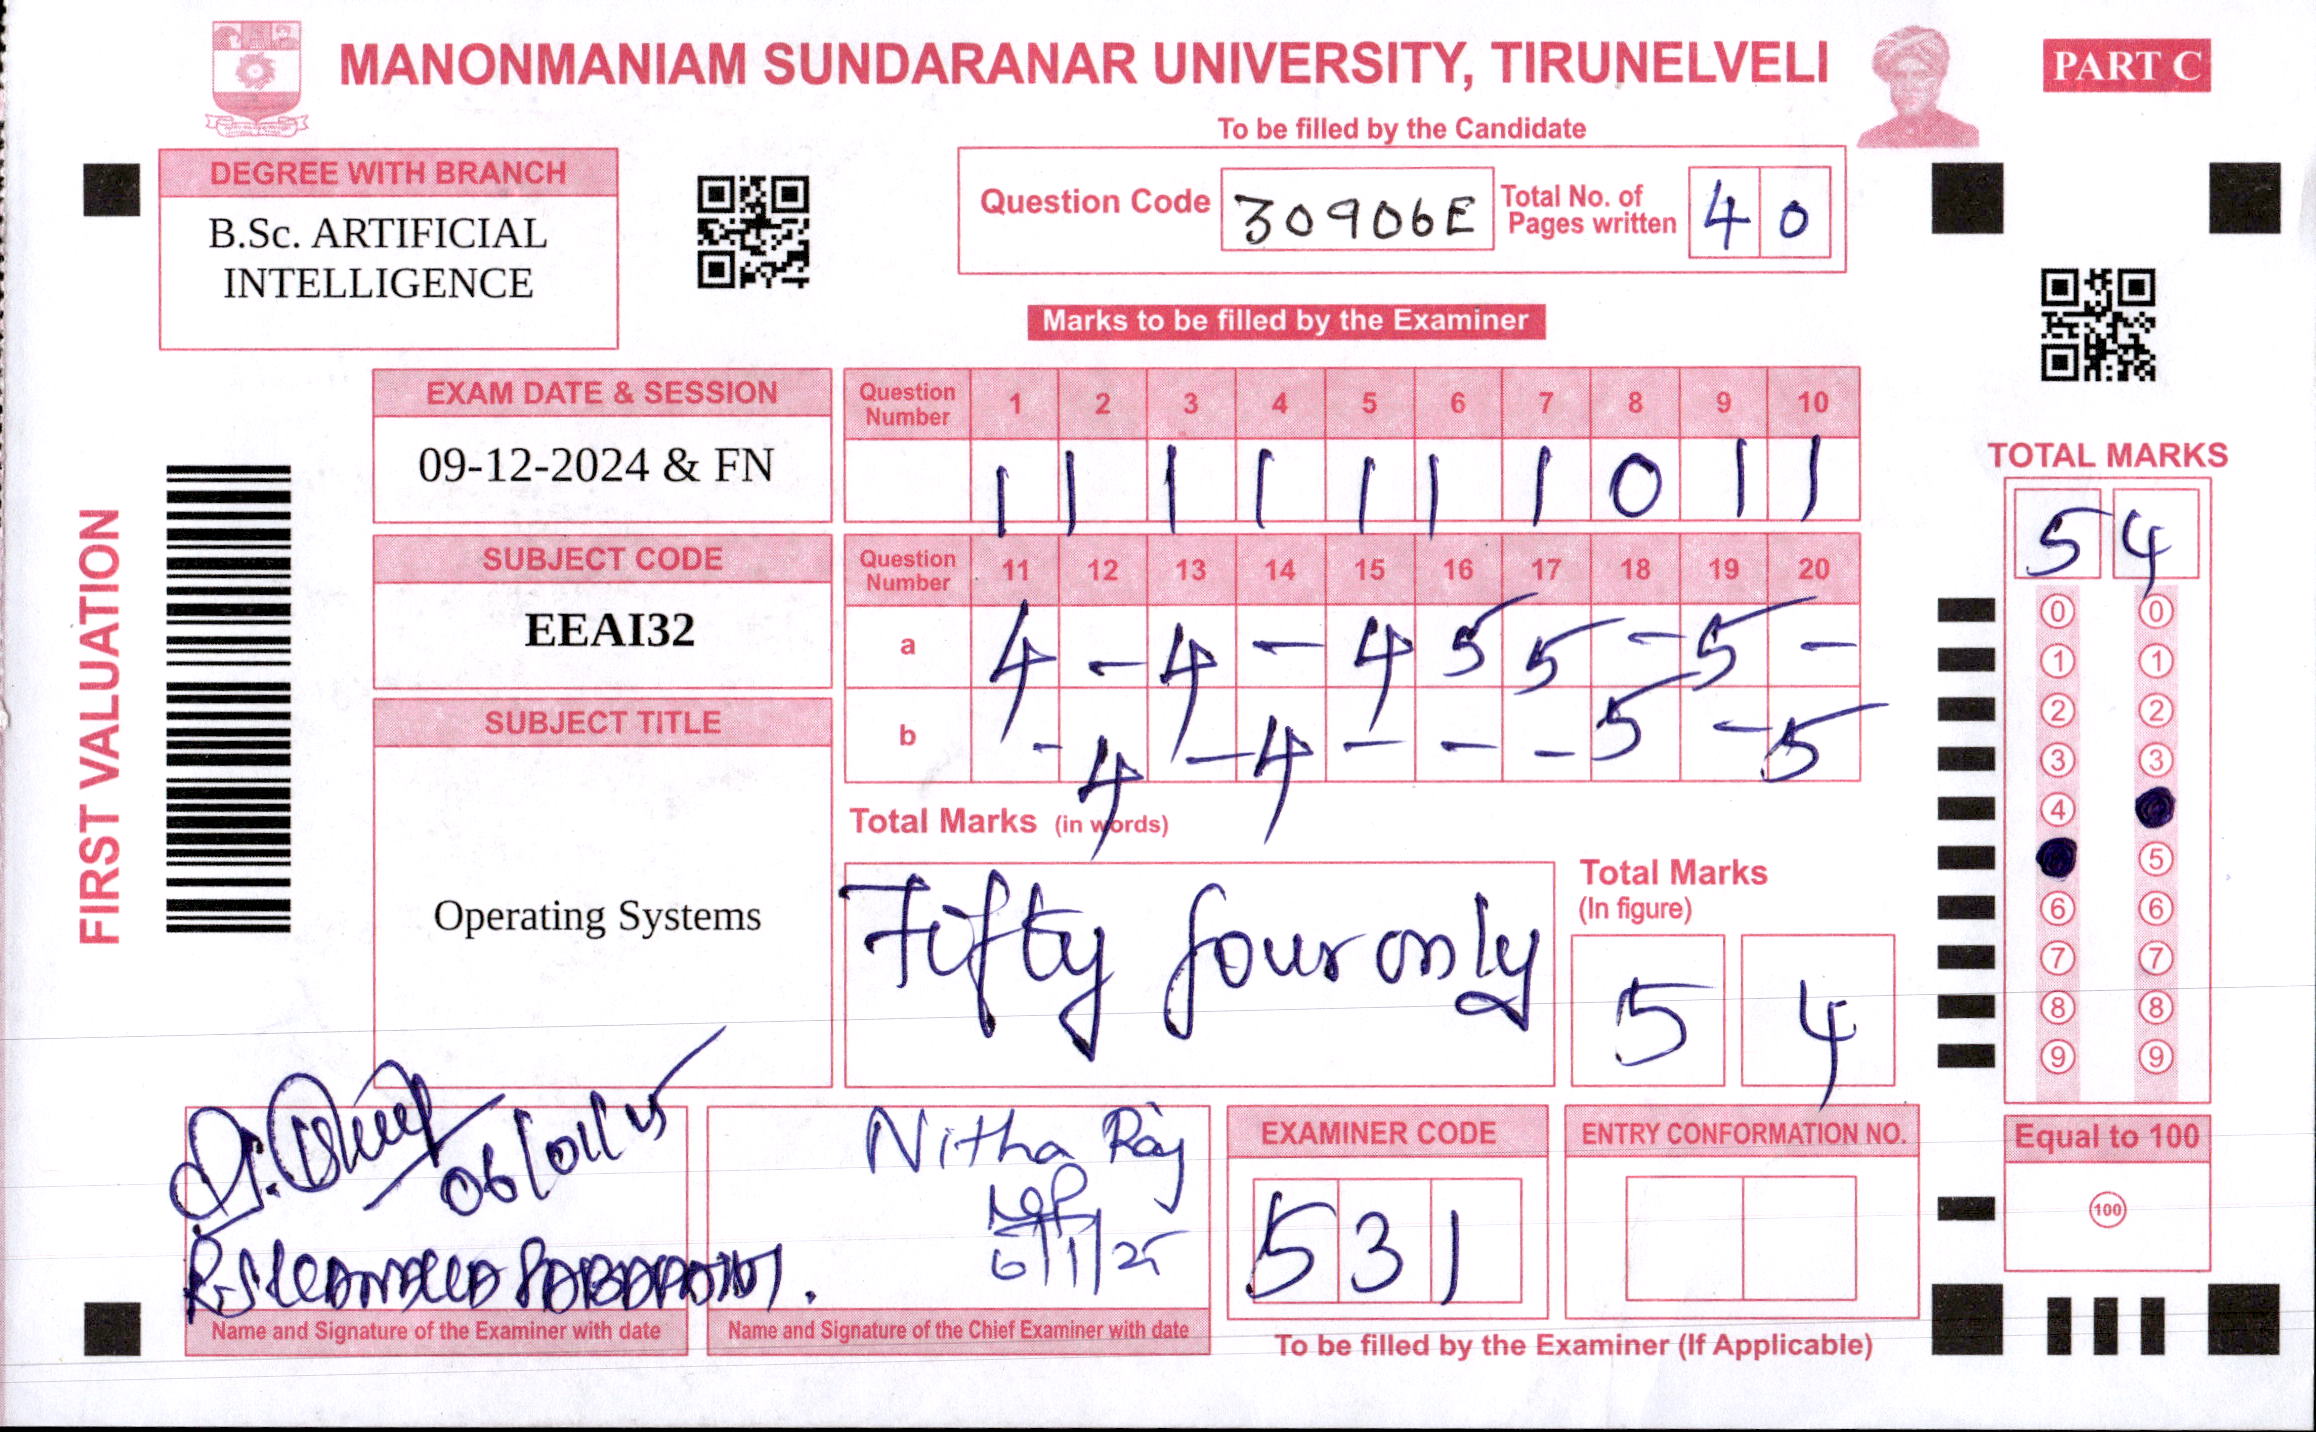 MANONMANIAM SUNDARANAR UNIVERSITY, TIRUNELVELI
PART C
To be filled by the Candidate
DEGREE WITH BRANCH
B.Sc. ARTIFICIAL
INTELLIGENCE
Question Code 30906E Total No. of Pages written 40
Marks to be filled by the Examiner
FIRST VALUATION
EXAM DATE & SESSION
09-12-2024 & FN
SUBJECT CODE
EEAI32
SUBJECT TITLE
Operating Systems
Question Number 1 2 3 4 5 6 7 8 9 10
1 1 1 1 1 1 1 0 1 1
Question Number 11 12 13 14 15 16 17 18 19 20
a 4 - 4 - 4 5 5 - 5 -
b - 4 - 4 - - - 5 - 5
Total Marks (in words)
Fifty four only
Total Marks
(In figure)
5 4
TOTAL MARKS
5 4
0 0
1 1
2 2
3 3
4
5
6 6
7 7
8 8
9 9
Equal to 100
100
06/01/25
Name and Signature of the Examiner with date
Nitha Raj
6/1/25
Name and Signature of the Chief Examiner with date
EXAMINER CODE
531
ENTRY CONFORMATION NO.
To be filled by the Examiner (If Applicable)